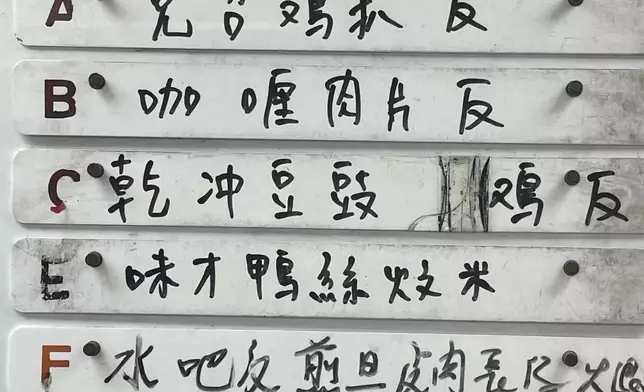 A 鸡扒反
B 咖喱肉片反
C 乾冲豆豉 鸡反
E 味才鴨絲炆米
F 水吧反煎旦 肉